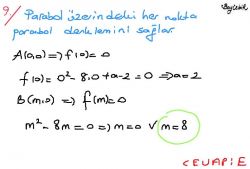 9/ Parabol üzerindeki her nokta
parabol denklemini sağlar
A(0,0) ⟹ f(0)=0
f(0)=0²-8.0+a-2=0 ⟹ a=2
B(m,0) ⟹ f(m)=0
m²-8m=0 ⟹ m=0 ∨ m=8
CEVAP E